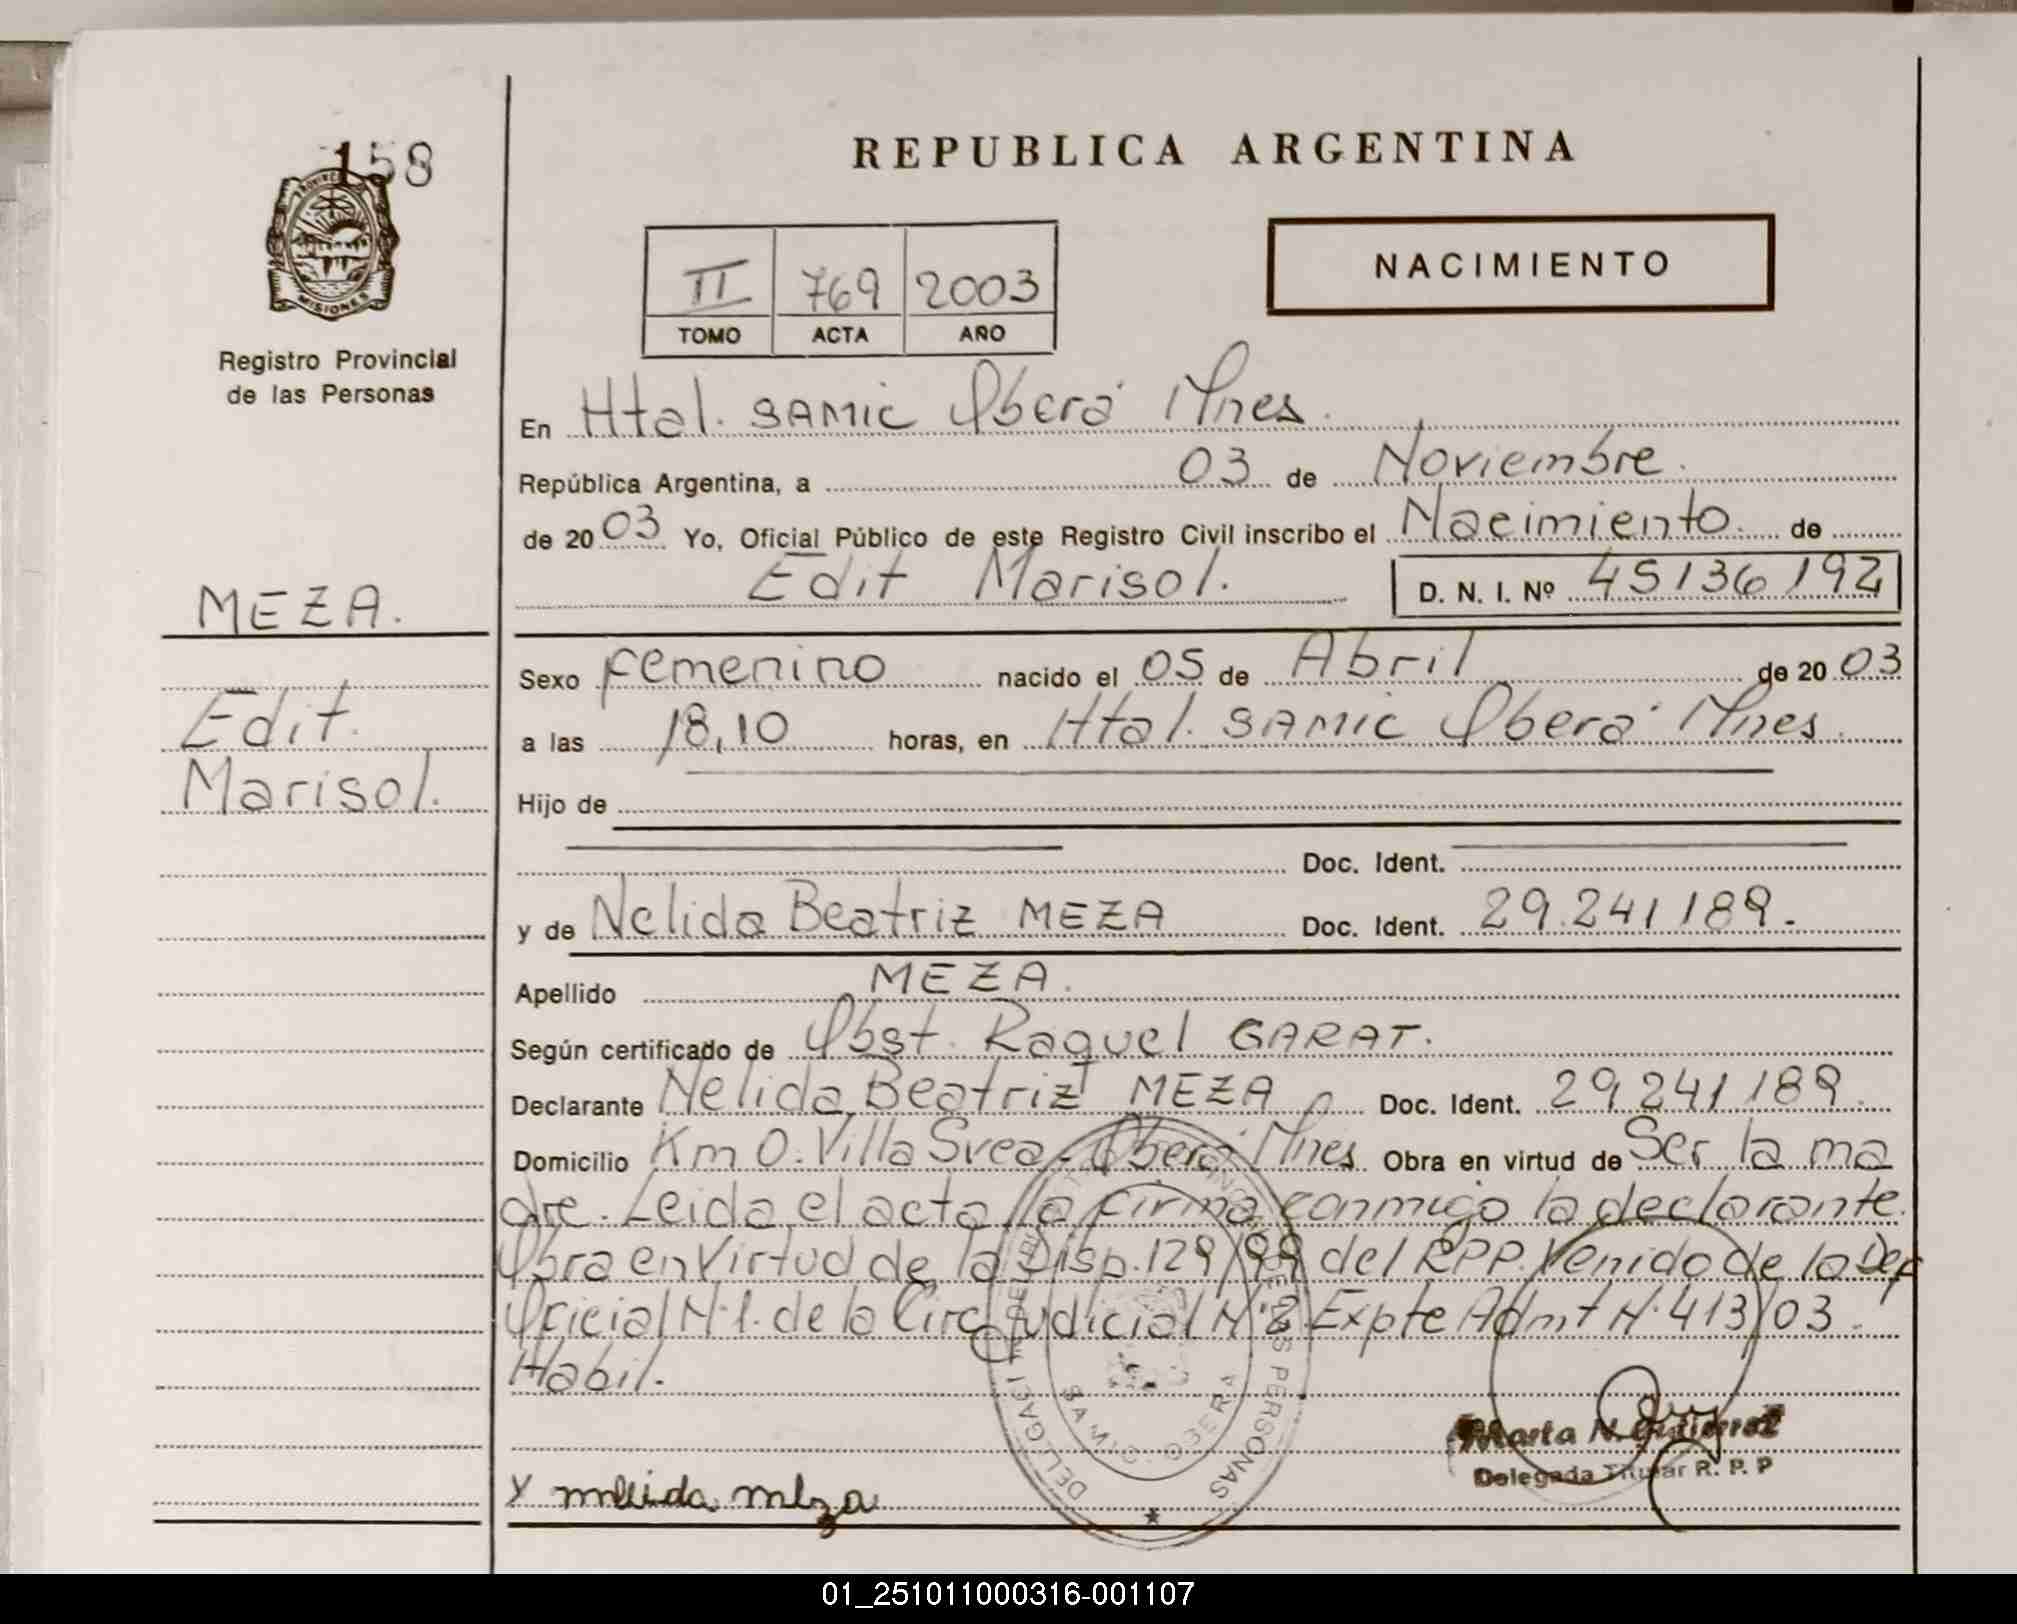 158
PROVINCIA
MISIONES
Registro Provincial
de las Personas
REPUBLICA ARGENTINA
II 769 2003
TOMO ACTA AÑO
NACIMIENTO
En Htal. SAMIC Oberá Mnes.
República Argentina, a 03 de Noviembre.
de 2003 Yo, Oficial Público de este Registro Civil inscribo el Nacimiento. de
Edit Marisol. D. N. I. Nº 45136192
MEZA.
Edit.
Marisol.
Sexo femenino nacido el 05 de Abril de 2003
a las 18,10 horas, en Htal. SAMIC Oberá Mnes.
Hijo de
Doc. Ident.
y de Nelida Beatriz MEZA Doc. Ident. 29.241189.
Apellido MEZA.
Según certificado de Obst. Raquel GARAT.
Declarante Nelida Beatriz MEZA Doc. Ident. 29.241189.
Domicilio Km 0. Villa Svea - Oberá Mnes Obra en virtud de Ser la ma
dre. Leida el acta la firma conmigo la declarante.
Obra en Virtud de la Disp. 129/99 del RPP. Venido de la Def
Oficial Nº1. de la Circ Judicial Nº2 Expte Admt Nº 413/03.
Habil.
DE LAS PERSONAS
SAMIC - OBERA
Marta N. Gutierrez
Delegada Titular R. P. P
y nelida meza
01_251011000316-001107